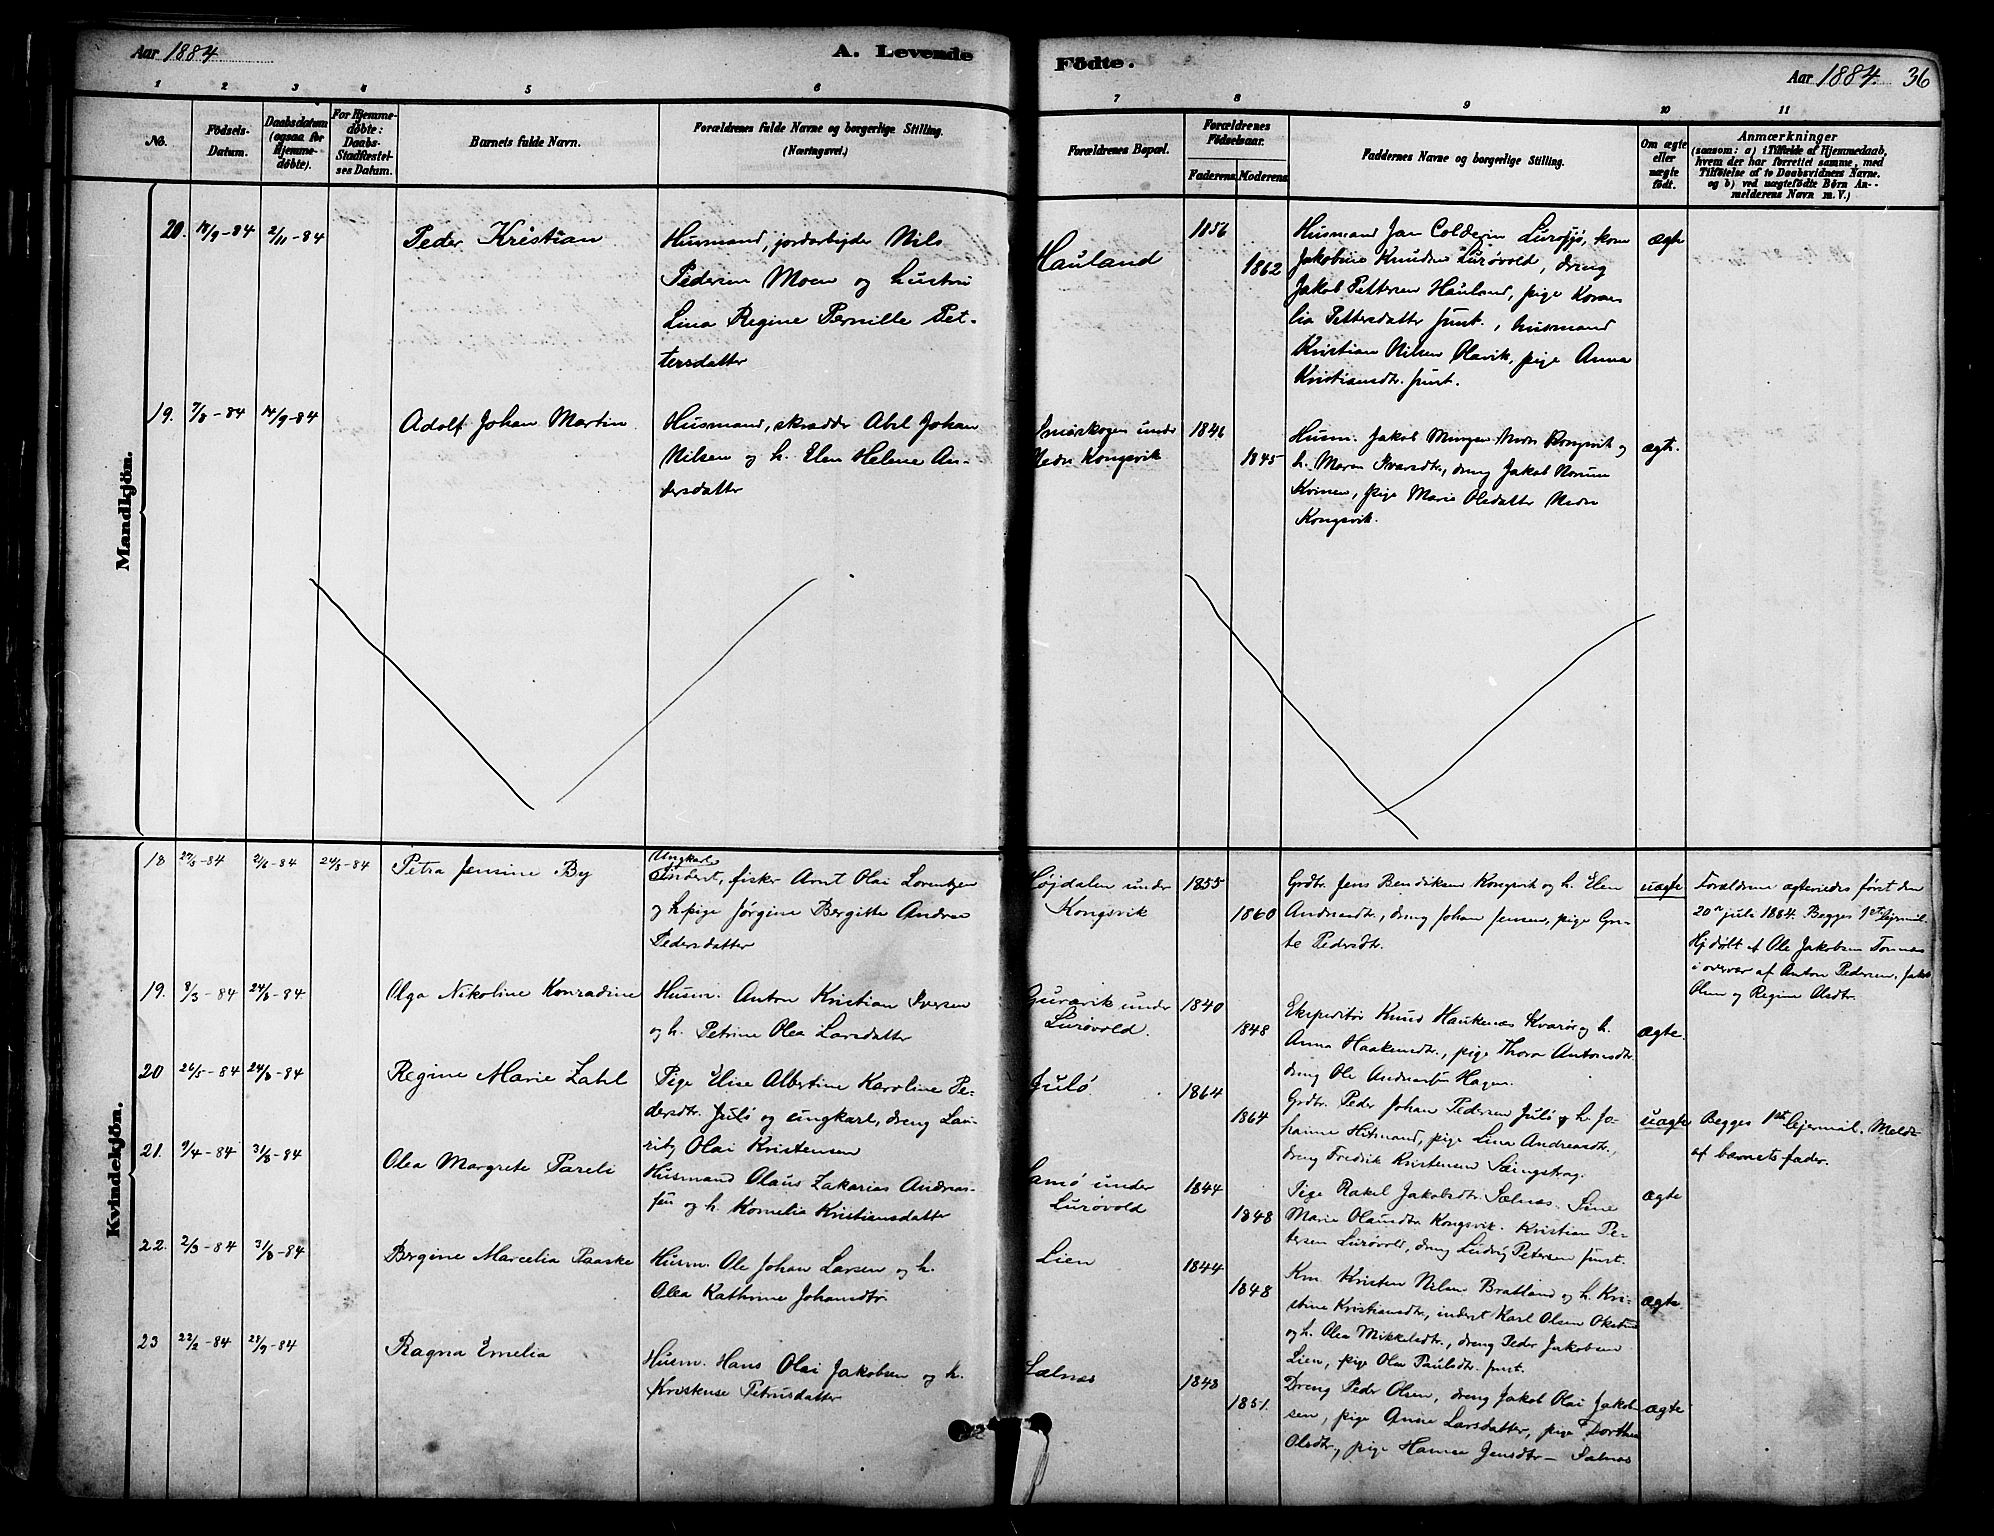 Aar 1884
A. Levende
Födte.
Aar 1884. 36
1 2 3 4 5 6 7 8 9 10 11
No.
Födsels-
Datum.
Daabsdatum
(ogsaa for
Hjemme-
døbte).
For Hjemme-
døbte:
Daabs-
Stadfæstel-
ses Datum.
Barnets fulde Navn.
Forældrenes fulde Navne og borgerlige Stilling.
(Næringsvei.)
Forældrenes Bopæl.
Forældrenes
Födselsaar.
Faderens. Moderens.
Faddernes Navne og borgerlige Stilling.
Om ægte
eller
uægte
födt.
Anmærkninger
(saasom: a) i Tilfælde af Hjemmedaab,
hvem der har forrettet samme, med
Tilföielse af to Daabsvidners Navne.
og b) ved uægtefödte Börn An-
melderens Navn m. V.)
Mandkjön.
20. 14/9-84 2/11-84 Peder Kristian
Husmand, jordarbejder Nils
Pedersen Moen og hustru
Lina Regine Pernille Pet-
tersdatter
Hauland
1856
1862
Husmand Jan Colderin Lurøfjs, kone
Jakobine Knudsen Lurøvold, dreng
Jakob Pettersen Hauland, pige Korne
lia Pettersdatter smst., husmand
Kristian Nilsen Olavik, pige Anna
Kristiansdtr. smst.
ægte
19. 7/8-84 14/9-84 Adolf Johan Martin
Husmand, skrædder Abel Johan
Nilsen og h. Elen Helene An-
dersdatter
Smørskogen under
Nedre Kongsvik
1846
1845
Husm. Jakob Nedre Kongsvik og
h. Maren Ivarsdtr., dreng Jakob
Kvinen, pige Marie Olsdatter Nedre
Kongsvik.
ægte.
Kvindekjön.
18 27/3-84 2/6-84 24/8-84 Petra Jensine By
Ungkarl
Inderst, fisker Arnt Olai Lorentzen
og pige Jørgine Bergitte Andrea
Pedersdatter
Højdalen under
Kongsvik
1855
1860
Grdbr. Jens Bendiksen Kongsvik og h. Elen
Andreasdtr., dreng Johan Jensen, pige Gre-
te Pedersdtr.
uægte
Forældrene ægteviedes først den
20de juli 1884. Begges 1ste lejermål.
Hj.døbt af Ole Jakobsen Tonnes
i overvær af Anton Pedersen, Jakob
Olsen og Regine Olsdtr.
19. 8/3-84 24/8-84 Olga Nikoline Konradine
Husm. Anton Kristian Iversen
og h. Petrine Olea Larsdatter
Guravik under
Lurøvold.
1840
1848
Ekspeditør Knud Haukenæs Kvarø og h.
Anna Haakensdtr., pige Thora Antonsdtr.
dreng Ole Andreas Hagen.
ægte.
20 26/5-84 24/8-84 Regine Marie Zahl
Pige Elise Albertine Karoline Pe-
dersdtr. Julø og ungkarl, dreng Lau-
ritz Olai Kristensen
Julø
1864
1864
Grdbr. Peder Johan Pedersen Julø og h. Jo-
hanne Hitmand, pige Lina Andreasdtr.,
dreng Fredrik Kristensen
uægte
Begges 1ste lejermål. Meldt
af barnets fader.
21. 9/4-84 31/8-84 Olea Margrete Pareli
Husmand Olaus Zakarias Andreas-
sen og h. Kornelia Kristiansdatter
Lamø under
Lurøvold
1844
1848
Pige Rakel Jakobsdtr. Sælnæs. Sine
Marie Olausdtr. Kongsvik. Kristian Pe-
tersen Lurøvold, dreng Ludvig Petersen smst.
ægte
22. 2/3-84 31/8-84 Bergine Marcelia Paaske
Husm. Ole Johan Larsen og h.
Olea Kathrine Johansdtr.
Lien
1844
1848
Km. Kristen Nilsen Bratland og h. Kri-
stine Kristiansdtr., inderst Karl Olsen
og h. Olea Mikkelsdtr., dreng Peder Jakobsen
Lien, pige Olea Paulsdtr. smst.
ægte.
23 22/2-84 28/9-84 Ragna Emelia
Husm. Hans Olai Jakobsen og h.
Kristense Petrusdatter
Sælnæs
1848
1851.
Dreng Peder Olsen, dreng Jakob Olai Jakob-
sen, pige Anne Larsdatter, pige Dorthea
Olsdtr., pige Hansa Jensdtr - Sælnæs
ægte